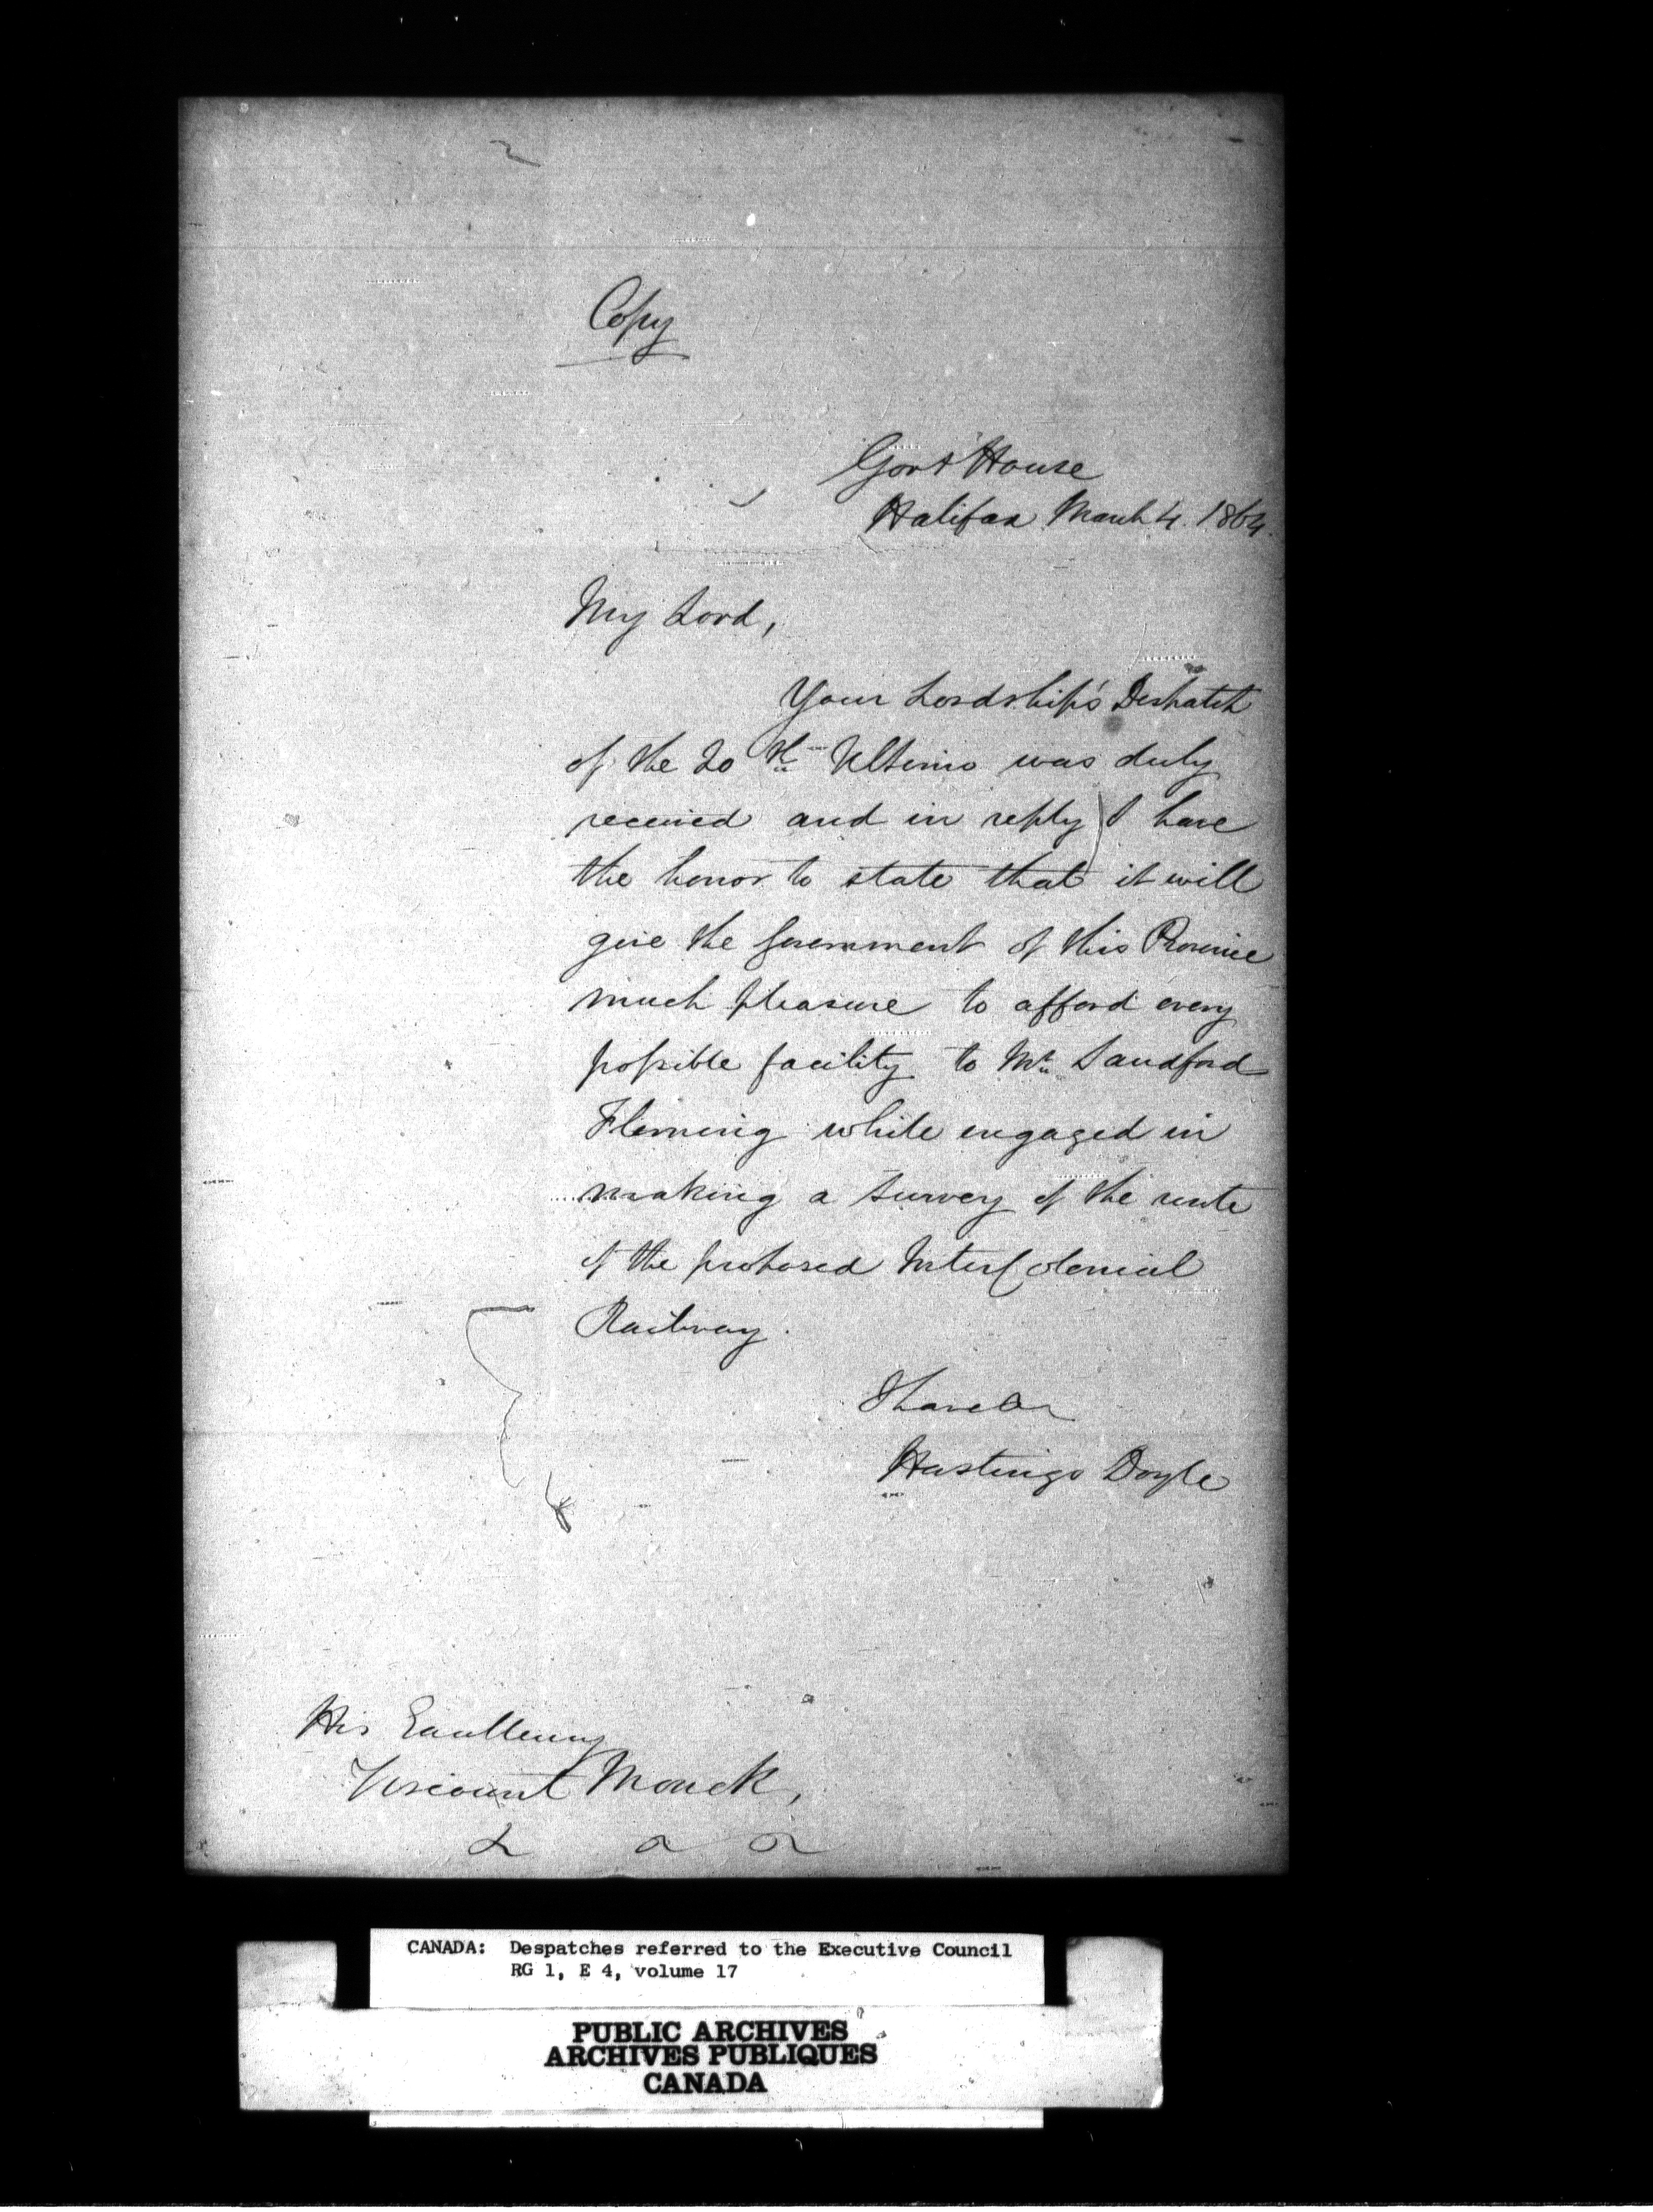 Copy
Govt House
Halifax March 4. 1864.
My Lord,
Your Lordship's Despatch
of the 20th Ultimo was duly
received and in reply I have
the honor to state that it will
give the Government of this Province
much pleasure to afford every
possible facility to Mr. Sandford
Fleming while engaged in
making a survey of the route
of the proposed InterColonial
Railway.
I have &c
Hastings Doyle
His Excellency
Viscount Monck,
& & &
CANADA: Despatches referred to the Executive Council
RG 1, E 4, volume 17
PUBLIC ARCHIVES
ARCHIVES PUBLIQUES
CANADA